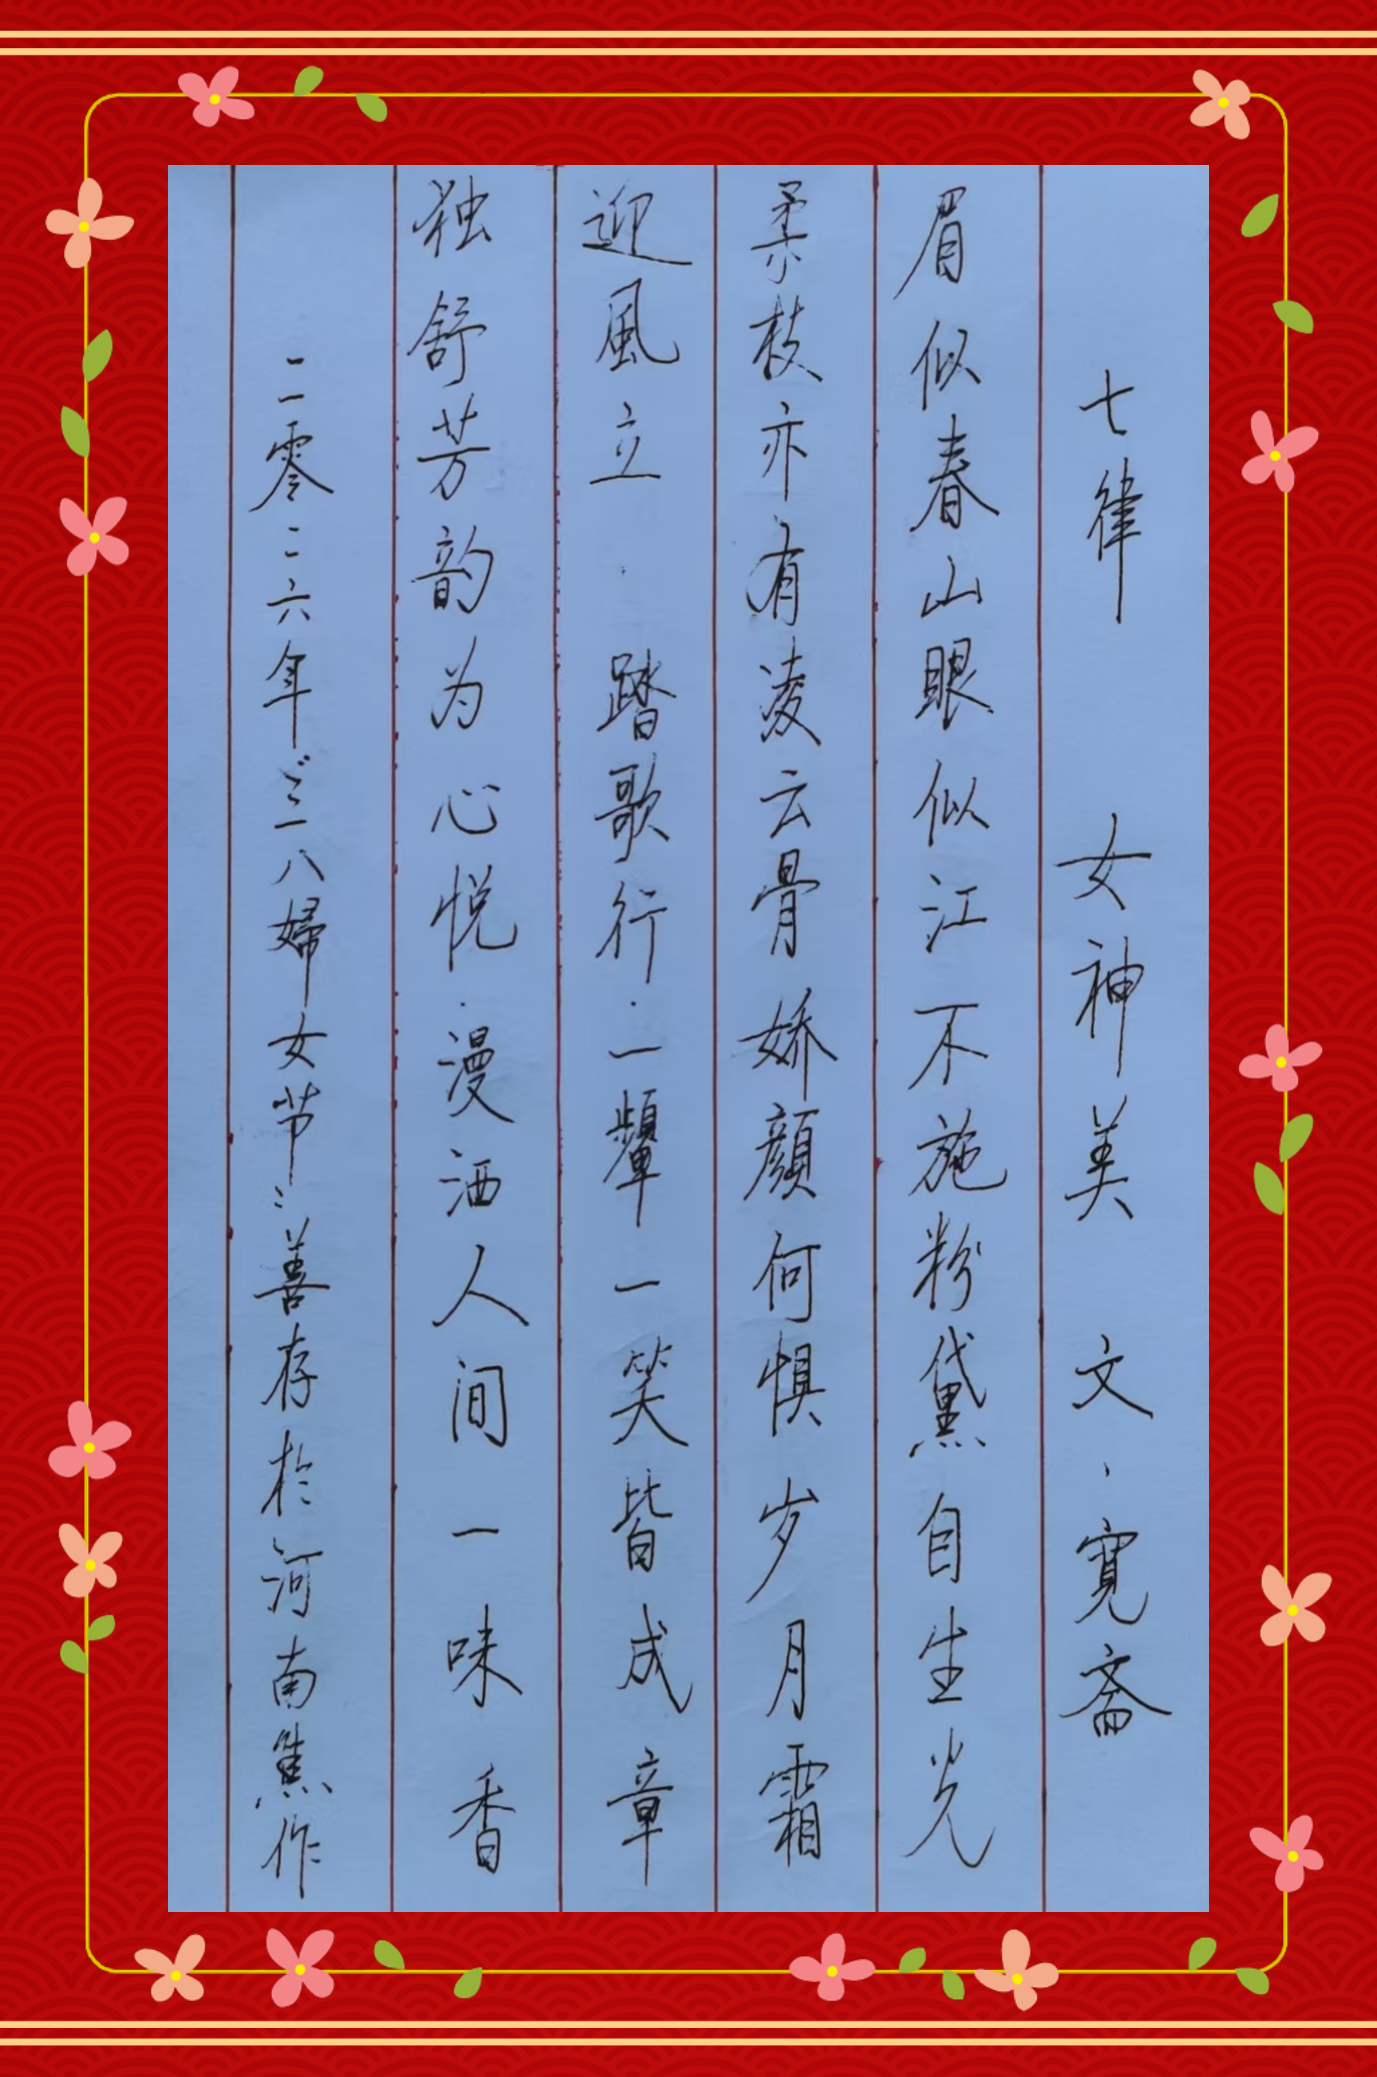 七律 女神美 文、寬斋
眉似春山眼似江不施粉黛自生光
柔枝亦有凌云骨娇顔何惧岁月霜
迎風立·踏歌行·一顰一笑皆成章
独舒芳韵为心悦·漫洒人间一味香
二零二六年三八婦女节善存於河南焦作